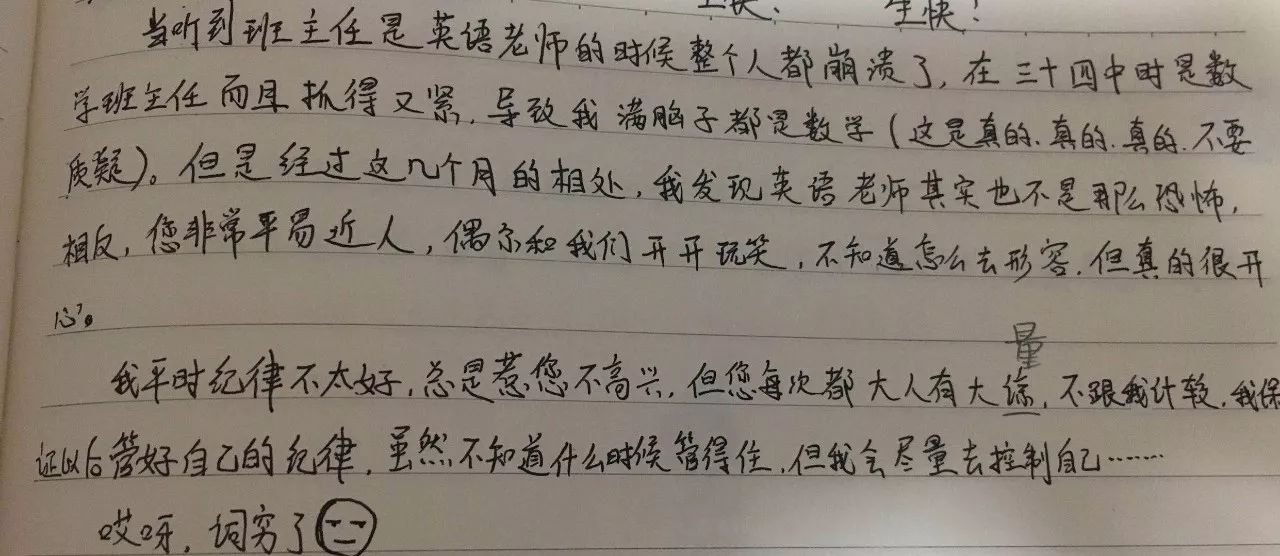 生快!
当听到班主任是英语老师的时候整个人都崩溃了,在三十四中时是数
学班主任而且抓得又紧,导致我满脑子都是数学(这是真的.真的.真的.不要
质疑)。但是经过这几个月的相处,我发现英语老师其实也不是那么恐怖,
相反,您非常平易近人,偶尔和我们开开玩笑,不知道怎么去形容.但真的很开
心。
量
我平时纪律不太好,总是惹您不高兴.但您每次都大人有大谅,不跟我计较.我保
证以后管好自己的纪律,虽然不知道什么时候管得住,但我会尽量去控制自己……
哎呀,词穷了